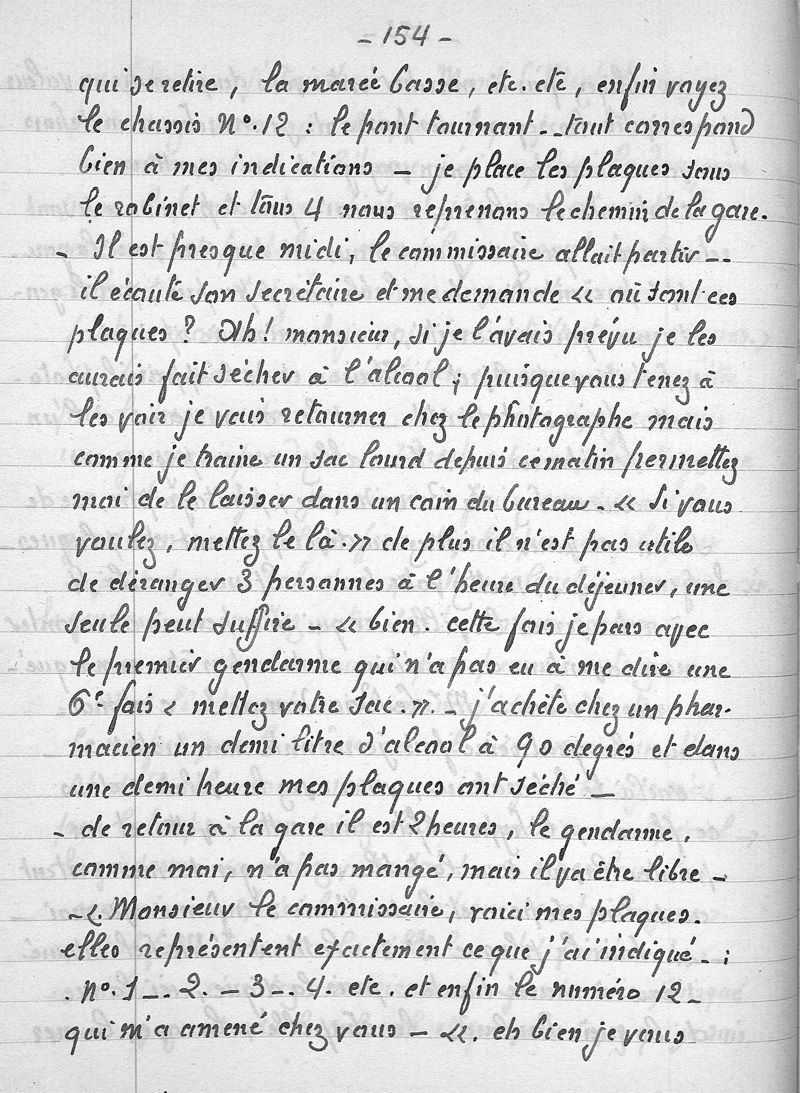 - 154 -
qui se retire, la marée basse, etc. etc, enfin voyez
le chassis N°. 12 : le pont tournant -- tout correspond
bien à mes indications - je place les plaques sous
le robinet et tous 4 nous reprenons le chemin de la gare.
- Il est presque midi, le commissaire allait partir --
il écoute son secrétaire et me demande « où sont ces
plaques ? Ah ! monsieur, si je l'avais prévu je les
aurais fait sécher à l'alcool ; puisque vous tenez à
les voir je vais retourner chez le photographe mais
comme je traine un sac lourd depuis ce matin permettez
moi de le laisser dans un coin du bureau. « Si vous
voulez, mettez le là. » de plus il n'est pas utile
de déranger 3 personnes à l'heure du déjeuner, une
seule peut suffire - « bien. cette fois je pars avec
le premier gendarme qui n'a pas eu à me dire une
6e fois « mettez votre sac. ». - j'achète chez un phar-
macien un demi litre d'alcool à 90 degrés et dans
une demi heure mes plaques ont séché -
- de retour à la gare il est 2 heures, le gendarme,
comme moi, n'a pas mangé, mais il va être libre -
- «. Monsieur le commissaire, voici mes plaques.
elles représentent exactement ce que j'ai indiqué - :
. N°. 1 -. 2. - 3 -. 4. etc. et enfin le numéro 12 -
qui m'a amené chez vous - «. eh bien je vous